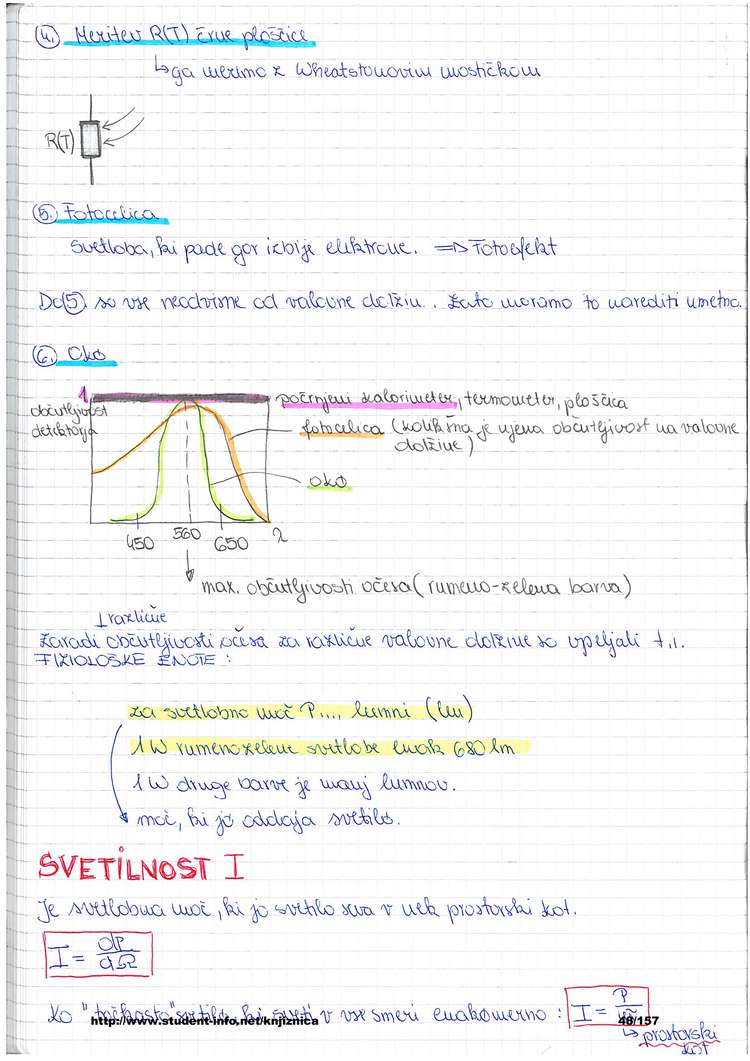 4. Meritev R(T) črne ploščice
↳ ga merimo z Wheatstonovim mostičkom
R(T)
5. Fotocelica
Svetloba, ki pade gor izbije elektrone. ⇒ Fotoefekt
Do 5 so vse neodvisne od valovne dolžin. Zato moramo to narediti umetno.
6. Oko
1
občutljivost
detektorja
počrnjeni kalorimeter, termometer, ploščica
fotocelica (kolikšna je njena občutljivost na valovne
dolžine)
oko
450 560 650 λ
max. občutljivosti očesa (rumeno-zelena barva)
različne
Zaradi občutljivosti očesa za različne valovne dolžine so vpeljali t.i.
FIZIOLOŠKE ENOTE:
za svetlobno moč P..., lumni (lm)
1 W rumenozelene svetlobe enak 680 lm
1 W druge barve je manj lumnov.
moč, ki jo oddaja svetilo.
SVETILNOST I
Je svetlobna moč, ki jo svetilo seva v nek prostorski kot.
I = dP/dΩ
Ko "točkasto" svetilo, ki sveti v vse smeri enakomerno: I = P
http://www.student-info.net/knjiznica
48/157
↳ prostorski
kot